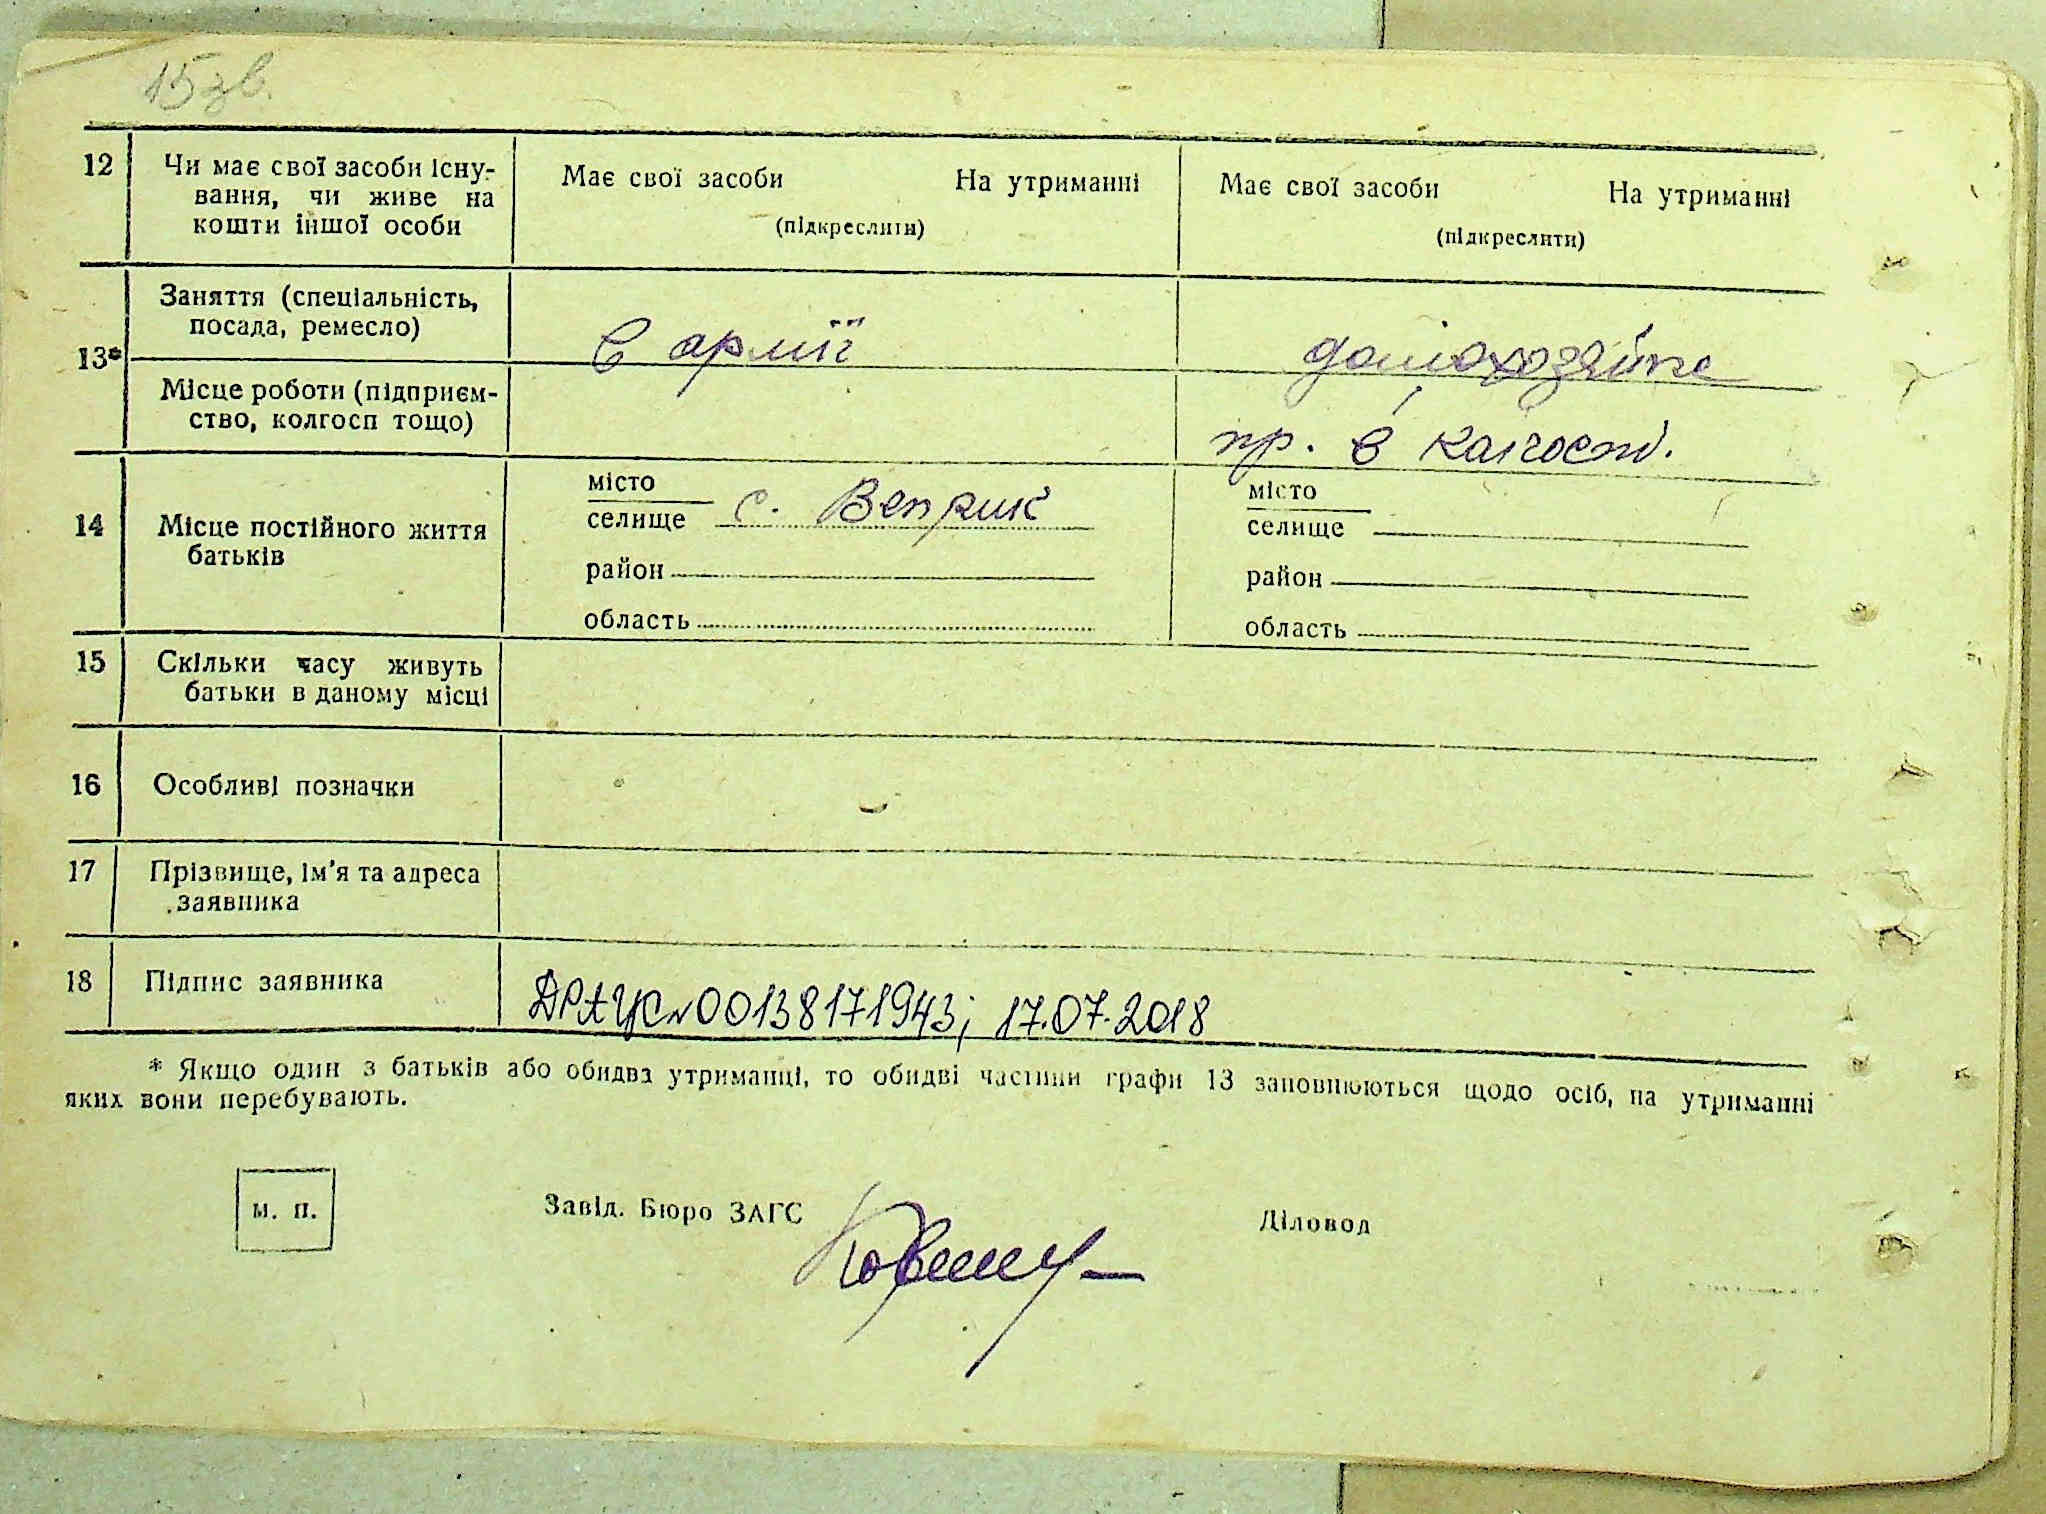 15зв.
12 Чи має свої засоби існу- Має свої засоби На утриманні Має свої засоби На утриманні
вання, чи живе на
кошти іншої особи (підкреслити) (підкреслити)
13* Заняття (спеціальність,
посада, ремесло) в армії домохозяйка
Місце роботи (підприєм-
ство, колгосп тощо) пр. в
14 Місце постійного життя
батьків
місто
селище с. Веприк
район
область
місто
селище
район
область
15 Скільки часу живуть
батьки в даному місці
16 Особливі позначки
17 Прізвище, ім'я та адреса
заявника
18 Підпис заявника 00138171943; 17.07.2018
* Якщо один з батьків або обидва утриманці, то обидві частини графи 13 заповнюються щодо осіб, на утриманні
яких вони перебувають.
м. п. Завід. Бюро ЗАГС Діловод